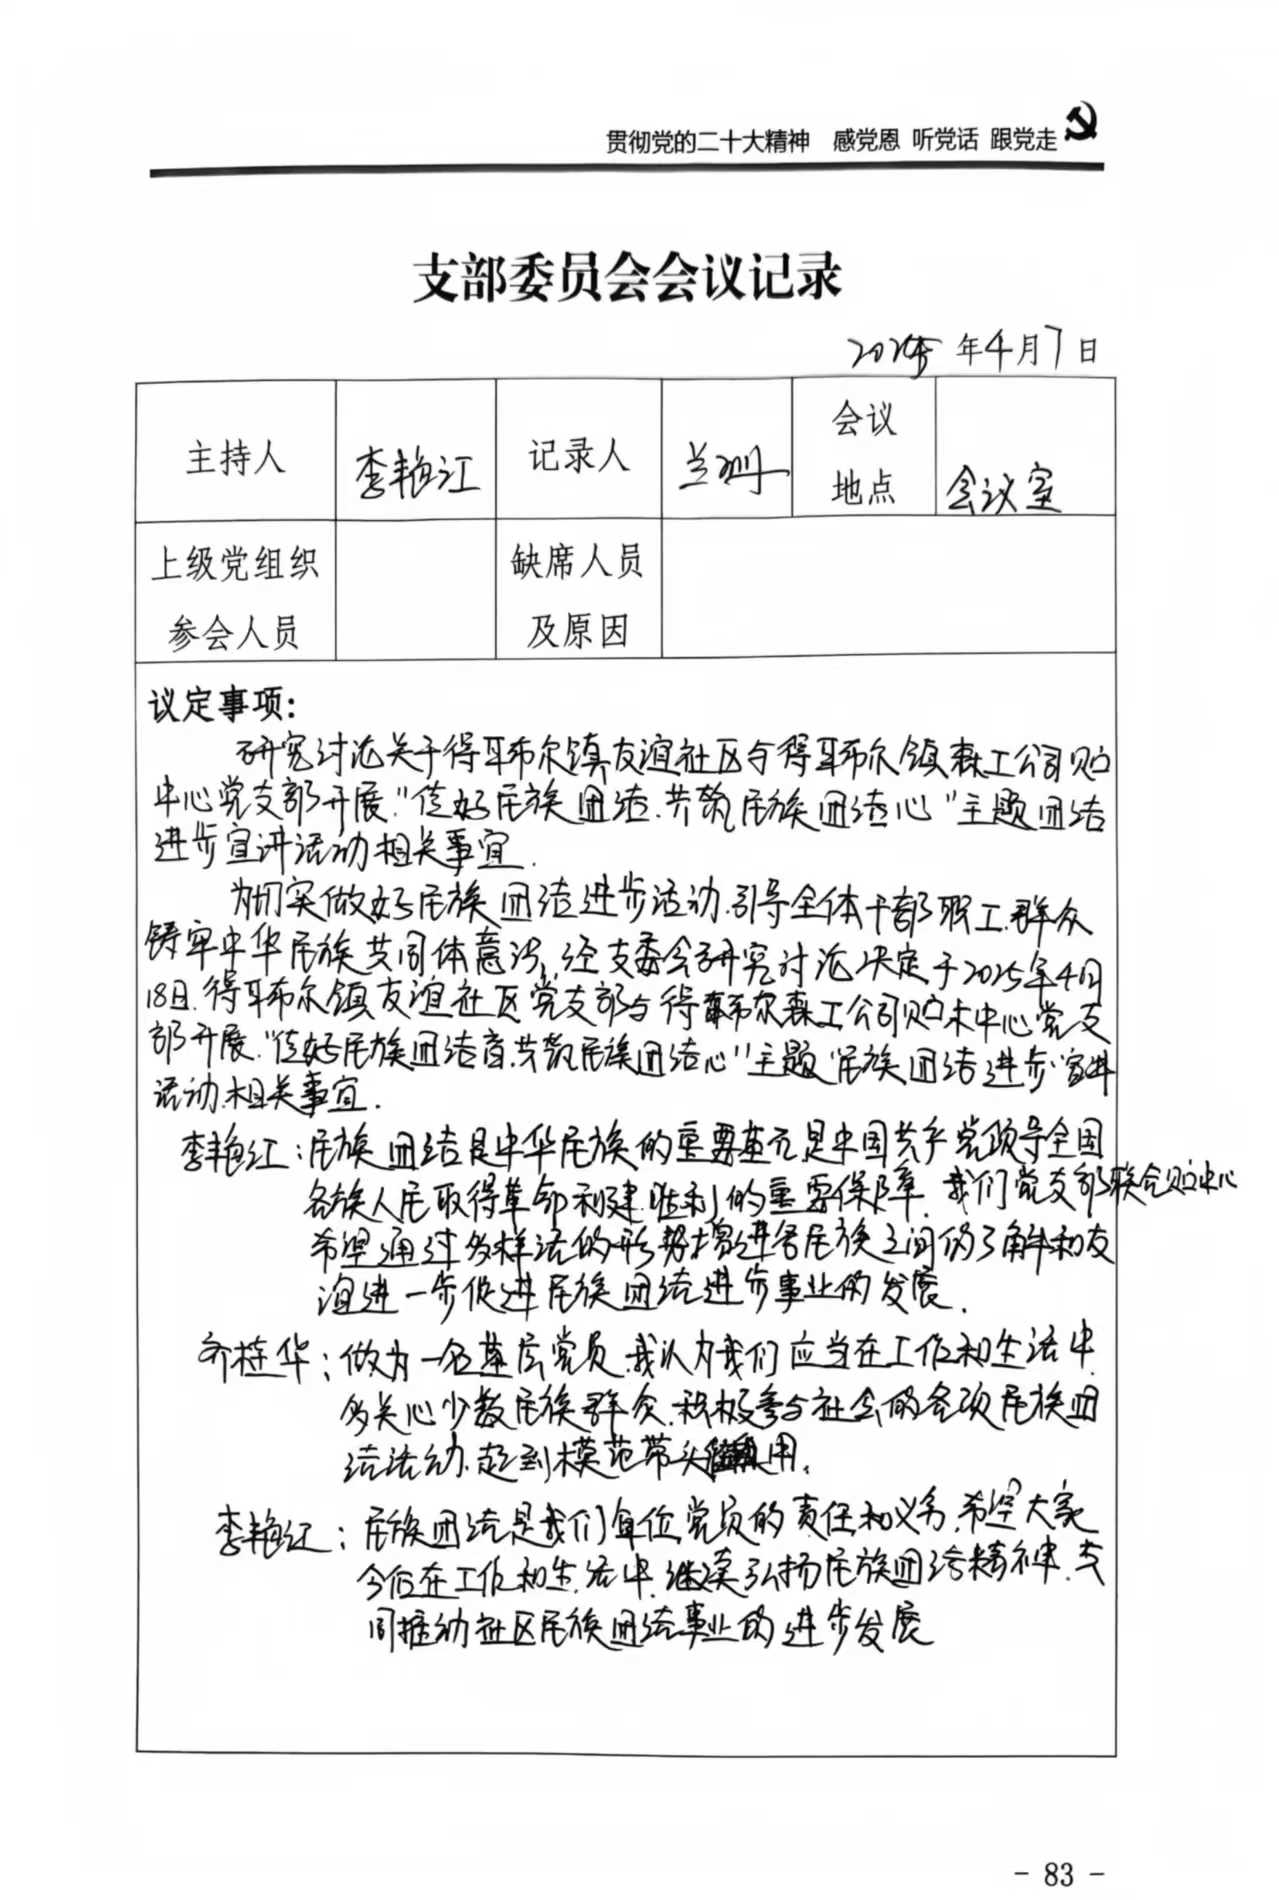 贯彻党的二十大精神 感党恩 听党话 跟党走
支部委员会会议记录
2025 年 4 月 7 日
主持人 李艳江 记录人 兰珊 会议地点 会议室
上级党组织参会人员 缺席人员及原因
议定事项：
研究讨论关于得耳布尔镇友谊社区与得耳布尔镇森工公司贮
中心党支部开展."促好民族团结.共筑民族团结心"主题团结
进步宣讲活动相关事宜.
为切实做好民族团结进步活动.引导全体干部职工.群众
铸牢中华民族共同体意识,经支委会研究讨论决定于2025年4月
18日.得耳布尔镇友谊社区党支部与得耳布尔森工公司贮木中心党支
部开展."促好民族团结音.共筑民族团结心"主题民族团结进步宣讲
活动.相关事宜.
李艳江：民族团结是中华民族的重要基元是中国共产党领导全国
各族人民取得革命和建胜利的重要保障.我们党支部联合贮中心
希望通过多样活的形势增进各民族之间的了解和友
谊进一步促进民族团结进步事业的发展.
乔桂华：做为一名基层党员.我认为我们应当在工作和生活中.
多关心少数民族群众.积极参与社会的各项民族团
结活动.起到模范带头用.
李艳江：民族团结是我们每位党员的责任和义务.希望大家
今后在工作和生活中.继续弘扬民族团结精神.共
同推动社区民族团结事业的进步发展
- 83 -